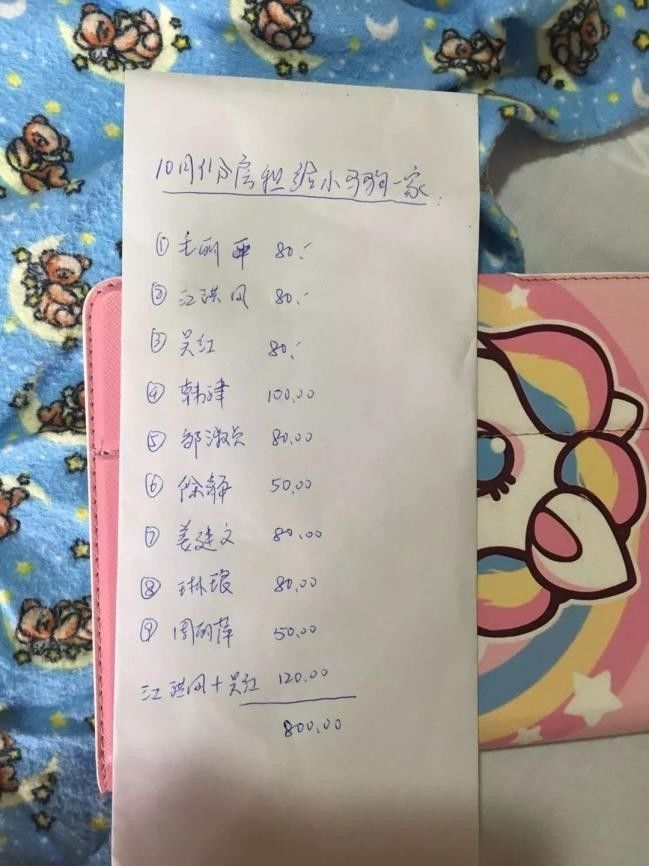 10月份房租给小狗狗一家
① 毛丽平 80.-
② 江琪凤 80.-
③ 吴红 80.-
④ 韩津 100.00
⑤ 邹淑贞 80.00
⑥ 徐静 50.00
⑦ 姜建文 80.00
⑧ 琳琅 80.00
⑨ 周丽萍 50.00
江琪凤+吴红 120.00
800.00